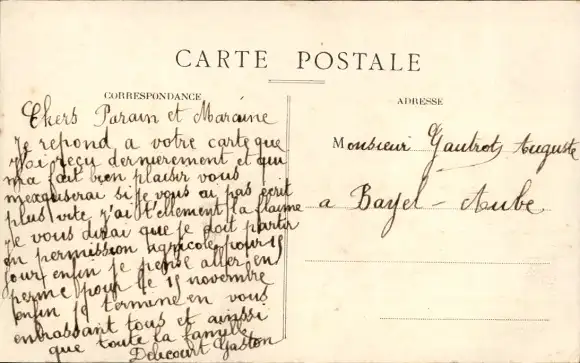 CARTE POSTALE
CORRESPONDANCE
Chers Parain et Maraine
Je repond a votre carte que
j'ai reçu dernierement et qui
ma fait bien plaisir vous
mexquserai si je vous ai pas ecrit
plus vite j'ai tellement la flaime
je vous dirai que je doit partir
en permission agricole pour 15
jour enfin je pense aller en
perme pour le 15 novembre
enfin je termine en vous
embrassant tous et ainssi
que toute la famille
Delicourt Gaston
ADRESSE
Monsieur Gautrot Auguste
a Bayel - Aube